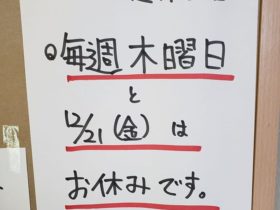 ◎毎週木曜日
と
12/21(金)は
お休みです。